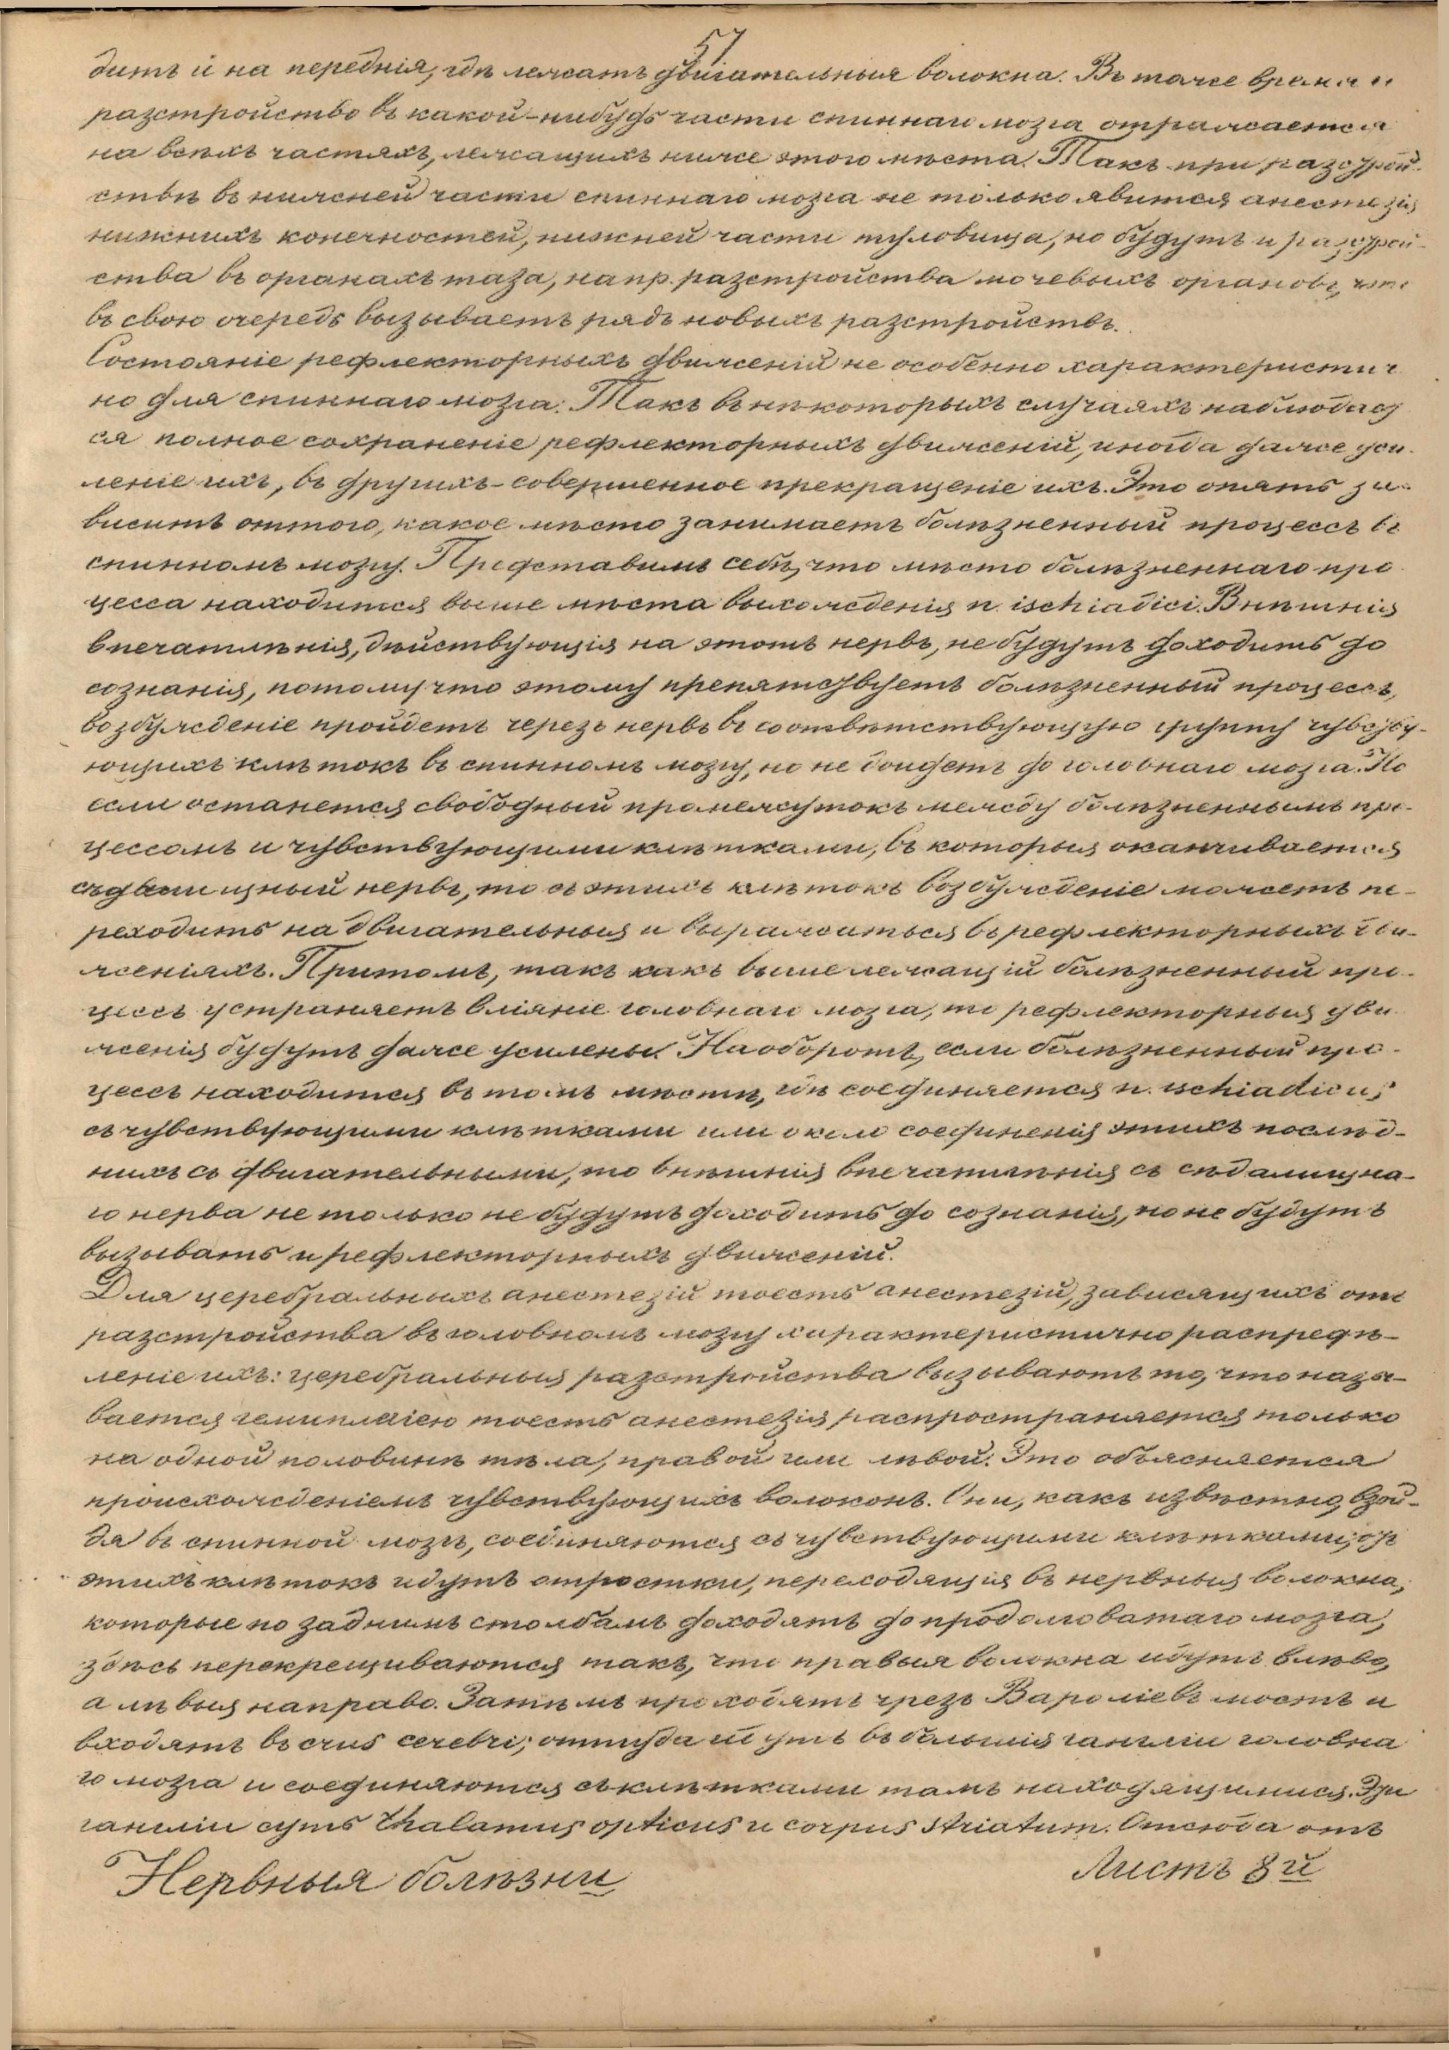 57
дитъ и на переднія, гдѣ лежатъ двигательныя волокна. Въ тоже время и
разстройство въ какой-нибудь части спиннаго мозга отражается
на всѣхъ частяхъ, лежащихъ ниже этого мѣста. Такъ при разстрой-
ствѣ въ нижней части спиннаго мозга не только явится анестезія
нижнихъ конечностей, нижней части туловища, но будутъ и разстрой-
ства въ органахъ таза, напр. разстройства мочевыхъ органовъ, что
въ свою очередь вызываетъ рядъ новыхъ разстройствъ.
Состояніе рефлекторныхъ движеній не особенно характеристич
но для спиннаго мозга. Такъ въ нѣкоторыхъ случаяхъ наблюдает
ся полное сохраненіе рефлекторныхъ движеній, иногда даже уси-
леніе ихъ, въ другихъ - совершенное прекращеніе ихъ. Это опять за-
виситъ оттого, какое мѣсто занимаетъ болѣзненный процессъ въ
спинномъ мозгу. Представимъ себѣ, что мѣсто болѣзненнаго про
цесса находится выше мѣста выхожденія n. ischiadici. Внѣшнія
впечатлѣнія, дѣйствующія на этотъ нервъ, не будутъ доходить до
сознанія, потому что этому препятствуетъ болѣзненный процессъ,
возбужденіе пройдетъ черезъ нервъ въ соотвѣтствующую группу чувству-
ющихъ клѣтокъ въ спинномъ мозгу, но не дойдетъ до головнаго мозга. Но
если останется свободный промежутокъ между болѣзненнымъ про-
цессомъ и чувствующими клѣтками, въ которыя оканчивается
сѣдалищный нервъ, то съ этихъ клѣтокъ возбужденіе можетъ пе-
реходить на двигательныя и выражаться въ рефлекторныхъ дви-
женіяхъ. Притомъ, такъ какъ вышележащій болѣзненный про-
цессъ устраняетъ вліяніе головнаго мозга, то рефлекторныя дви
женія будутъ даже усилены. Наоборотъ, если болѣзненный про-
цессъ находится въ томъ мѣстѣ, гдѣ соединяется n. ischiadicus
съ чувствующими клѣтками или около соединенія этихъ послѣд-
нихъ съ двигательными, то внѣшнія впечатлѣнія съ сѣдалищна-
го нерва не только не будутъ доходить до сознанія, но не будутъ
вызывать и рефлекторныхъ движеній.
Для церебральныхъ анестезій тоесть анестезій, зависящихъ отъ
разстройства въ головномъ мозгу характеристично распредѣ-
леніе ихъ: церебральныя разстройства вызываютъ то, что назы-
вается гемиплегіею тоесть анестезія распространяется только
на одной половинѣ тѣла, правой или лѣвой. Это объясняется
происхожденіемъ чувствующихъ волоконъ. Они, какъ извѣстно, взой-
дя въ спинной мозгъ, соединяются съ чувствующими клѣтками; отъ
этихъ клѣтокъ идутъ отростки, переходящія въ нервныя волокна,
которые по заднимъ столбамъ доходятъ до продолговатаго мозга,
здѣсь перекрещиваются такъ, что правыя волокна идутъ влѣво,
а лѣвыя направо. Затѣмъ проходятъ чрезъ Вароліевъ мостъ и
входятъ въ crus cerebri; оттуда идутъ въ большія гангліи головна
го мозга и соединяются съ клѣтками тамъ находящимися. Эти
гангліи суть thalamus opticus и corpus striatum. Отсюда отъ
Нервныя болѣзни
Листъ 8й